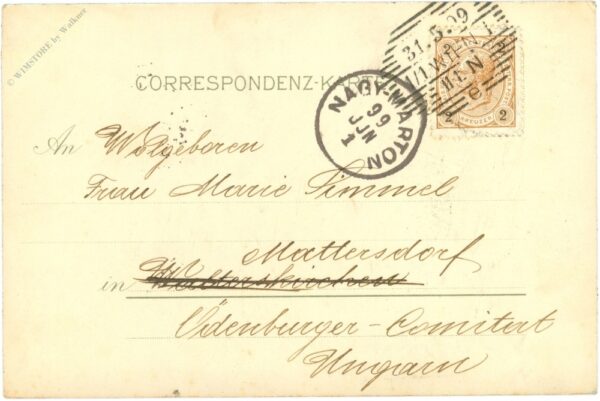 © WIMSTORE by Walkner
CORRESPONDENZ-KARTE
31.5.99
WIEN
NAGY-MARTON
99
JUN
1
2 KREUZER 2
An Wolgeboren
Frau Marie Simmel
Mattersdorf
in Walterskirchen
Ödenburger-Comitat
Ungarn